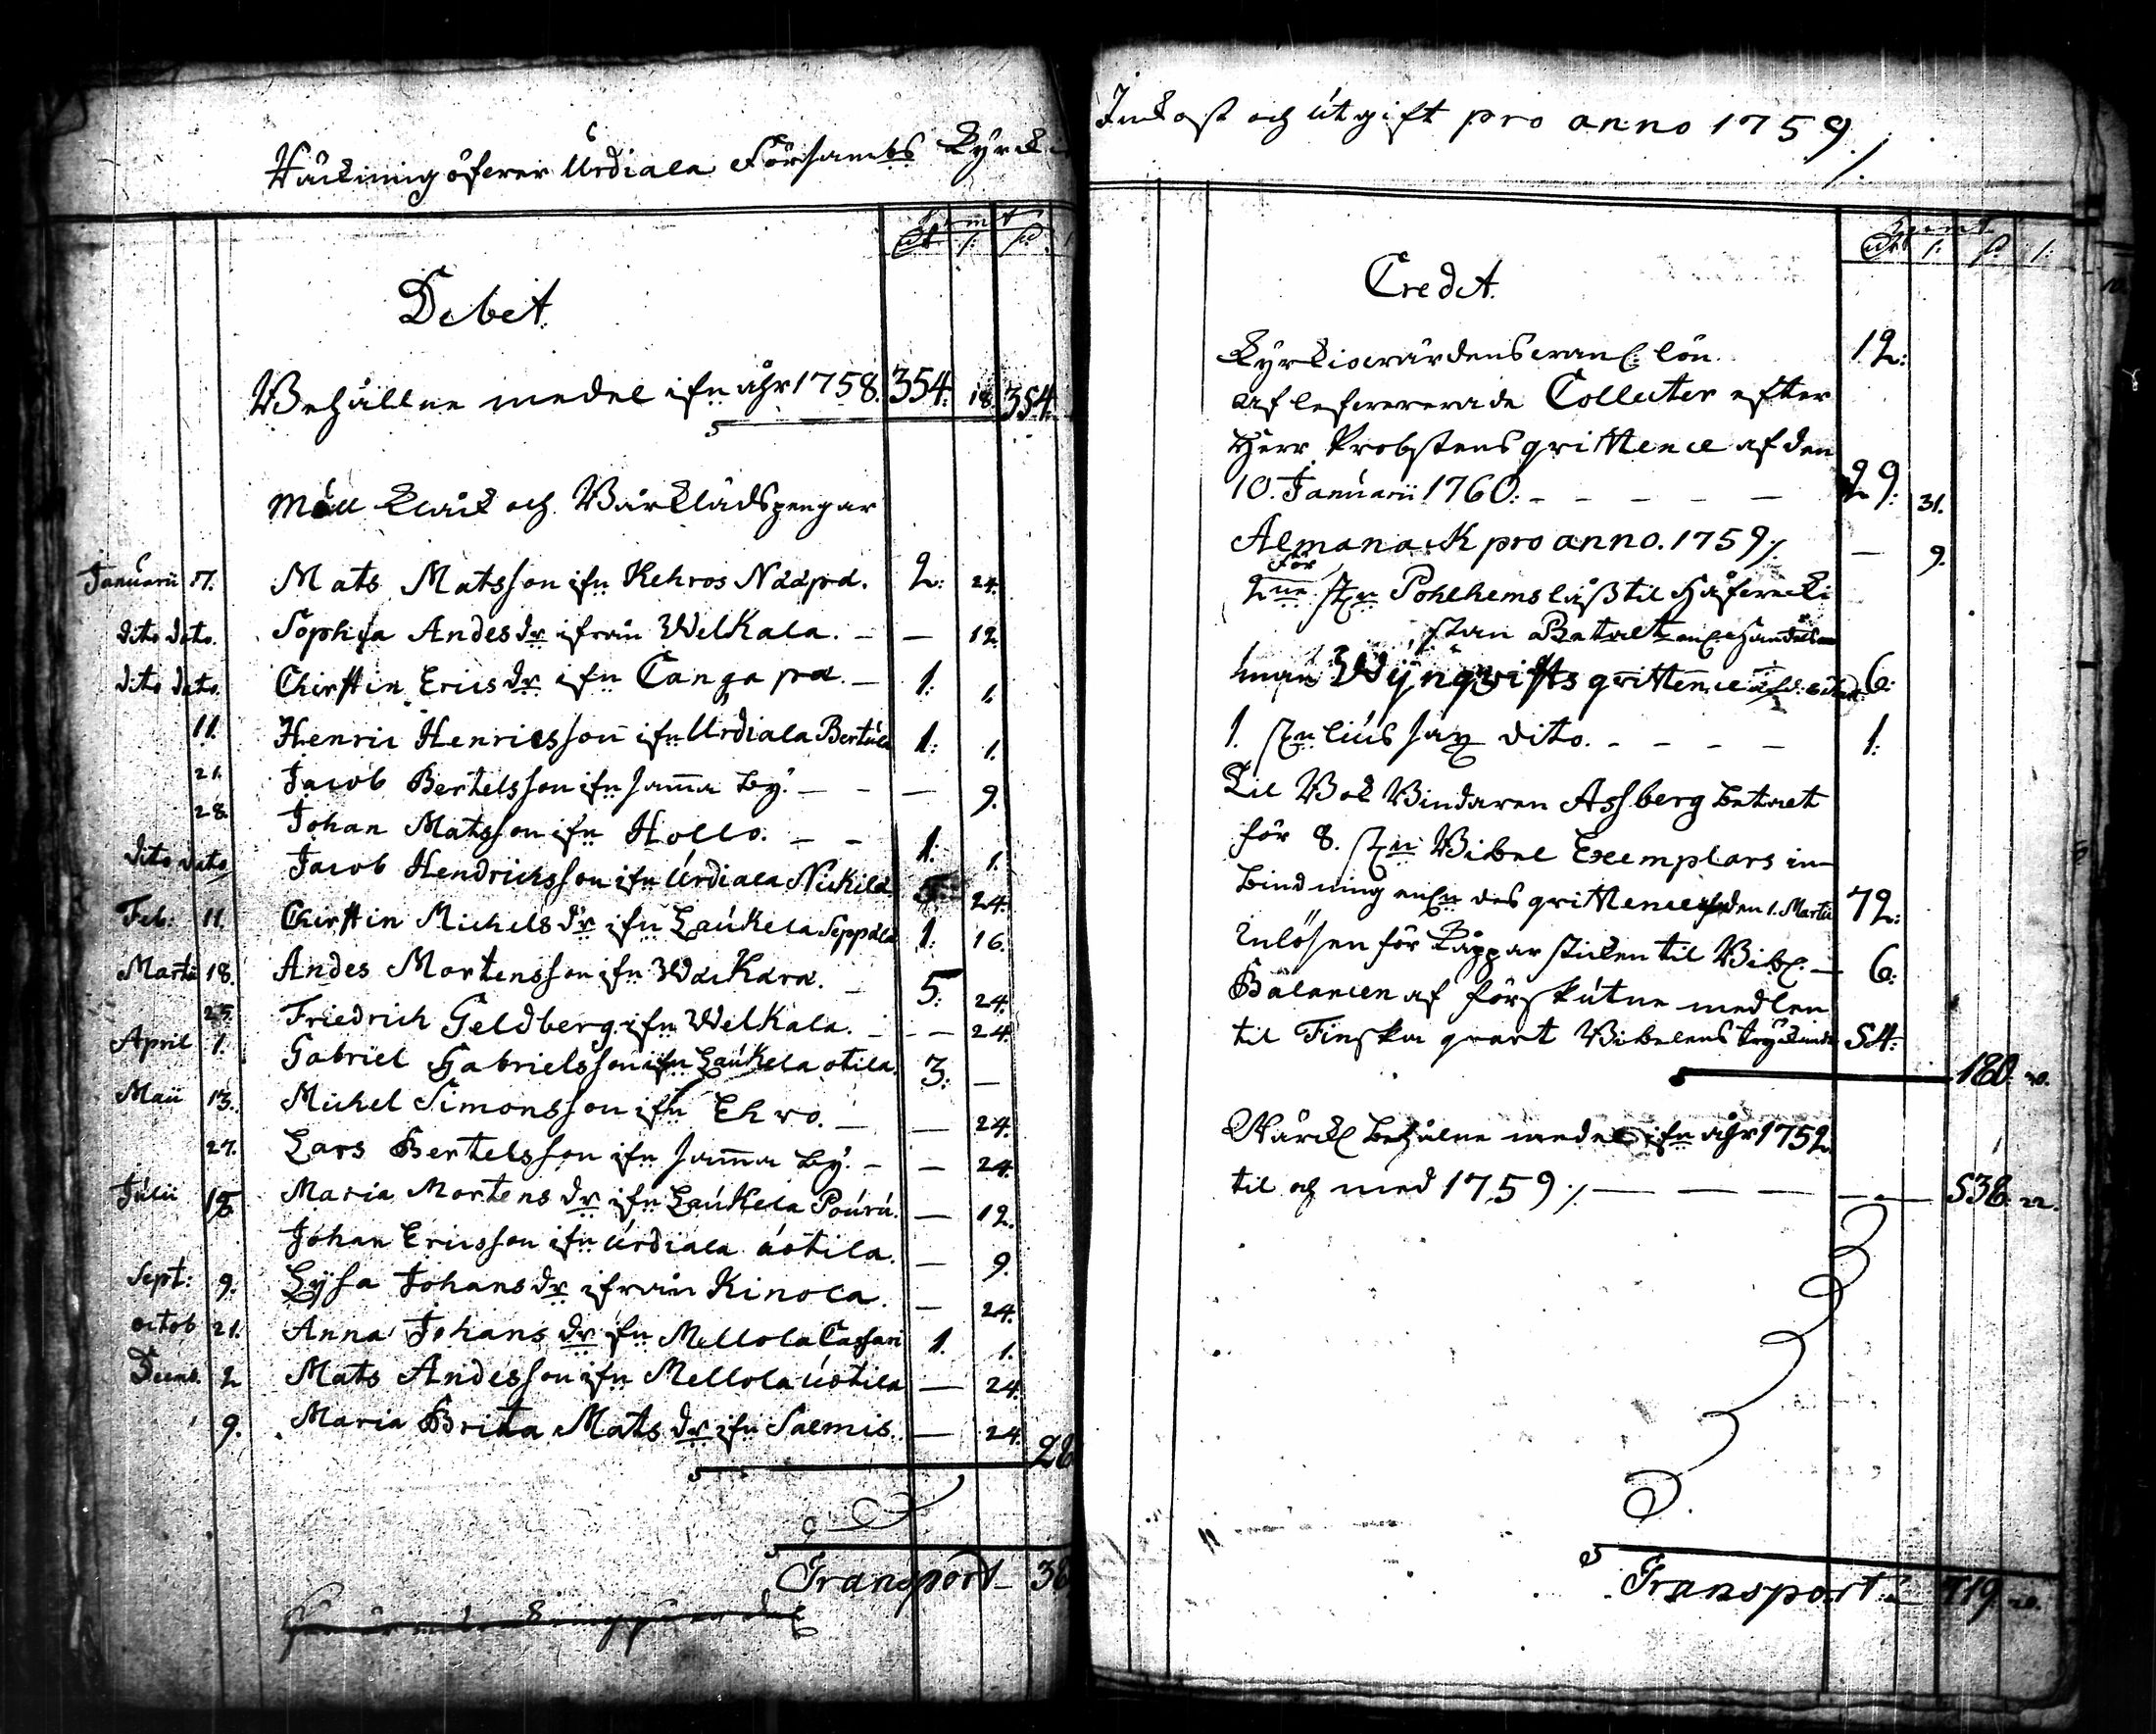 Räckning öfwer Urdiala Försambls Kyrck
Kopp: mt
dr s: dr
Debet.
Behållne medel ifrn åhr 1758. 354. 18 354.
Mull Klåck och Bårklädspengar
Januarii 17. Mats Matsson ifrn Kehros Nääpä. 2: 24.
dito dato. Sophia Andersdr ifrån Welkala. – — 12
dito dato. Chirstin Ericsdr ifrn Canga pä. – 1: 1.
11. Henric Henricsson ifrn Urdiala Bertula 1: 1.
21. Jacob Bertelsson ifrn samma by. – – — 9.
28. Johan Matsson ifrn Hollo. – – 1. 1.
dito dato Jacob Hendricksson ifrn Urdiala Nickilä 5 24.
Feb: 11. Chirstin Michelsdr ifrn Laukela Seppälä 1: 16.
Martii 18. Andes Mortensson ifrn Waikara. – 5: 24.
25. Friedrich Geldberg ifrn Welkala. – — 24.
April 1. Gabriel Gabrielsson ifrn Laukela otila. 3: —
Maii 13. Michel Simonsson ifrn Ehro. – — 24.
27. Lars Bertelsson ifrn samma by. – — 24.
Julii 18 Maria Mortensdr ifrn Laukela Pouru. — 12.
Johan Ericsson ifrn Urdiala uotila. — 9.
Sept: 9. Lysa Johansdr ifrån Kinola. — 24.
octob 21. Anna Johansdr ifrn Mellola Cassari 1. 1.
Decemb. 2 Mats Andesson ifrn Mellola uotila — 24.
9. Maria Brita Matsdr ifrn Salmis. — 24.
28
Transport – 38
Inkost och utgift pro anno 1759./.
dr s: dr s:
Credit.
Kyrkiowärdens lön. 12:
aflefwererade Collecter efter
Herr Probstens qvittence af den
10. Januarii 1760: – – – – – 29: 31.
Almanack pro anno. 1759 ./. — 9.
För
2ne st:n Polhems låss til
stan Betalt Handels
man Wynqvists qvittence 6:
1. st:n liussax dito. – – – – 1:
Til Bok Bindaren Assberg betalt
för 8. st:n Bibel Exemplars in-
bindning des qvittence af den 1. Martii 72:
Inlösen för Kåpparsticken til Bibl. – 6:
Balancen af förskutne medlen
til Finska quart Bibelens tryckande 54:
180. 20.
behålne medel ifrn åhr 1752
til och med 1759 ./. — — — — 538. 22.
Transport – 719. 10.